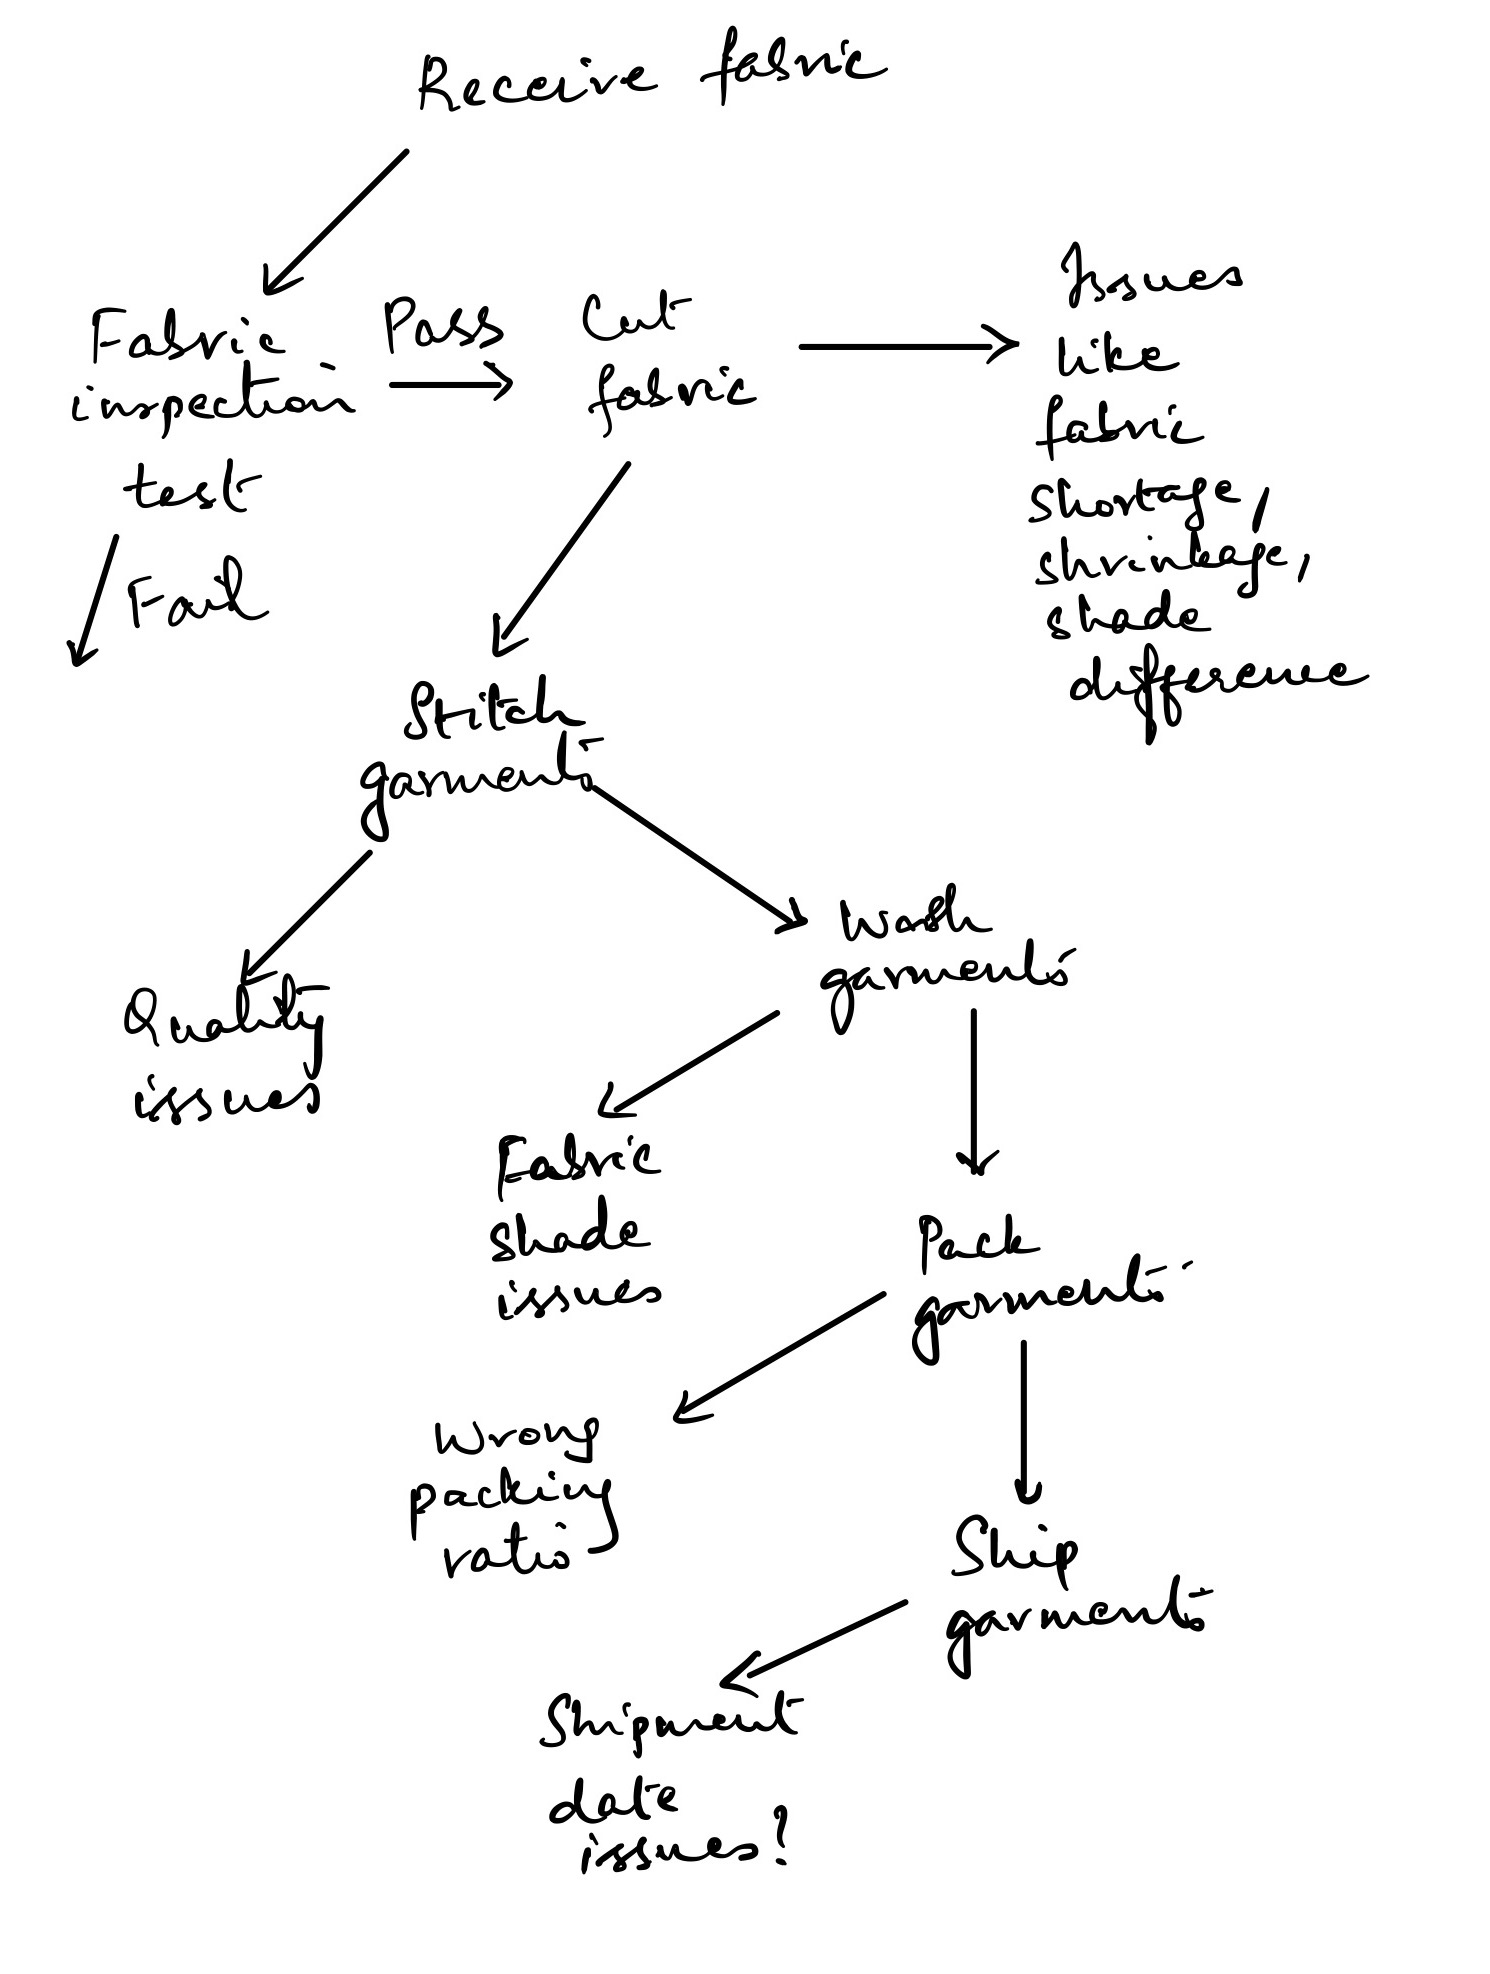 Receive fabric
Fabric
inspection
test
Pass
Cut
fabric
Issues
like
fabric
shortage,
shrinkage,
shade
difference
Fail
Stitch
garments
Quality
issues
Wash
garments
Fabric
shade
issues
Pack
garments
Wrong
packing
ratio
Ship
garments
Shipment
date
issues?